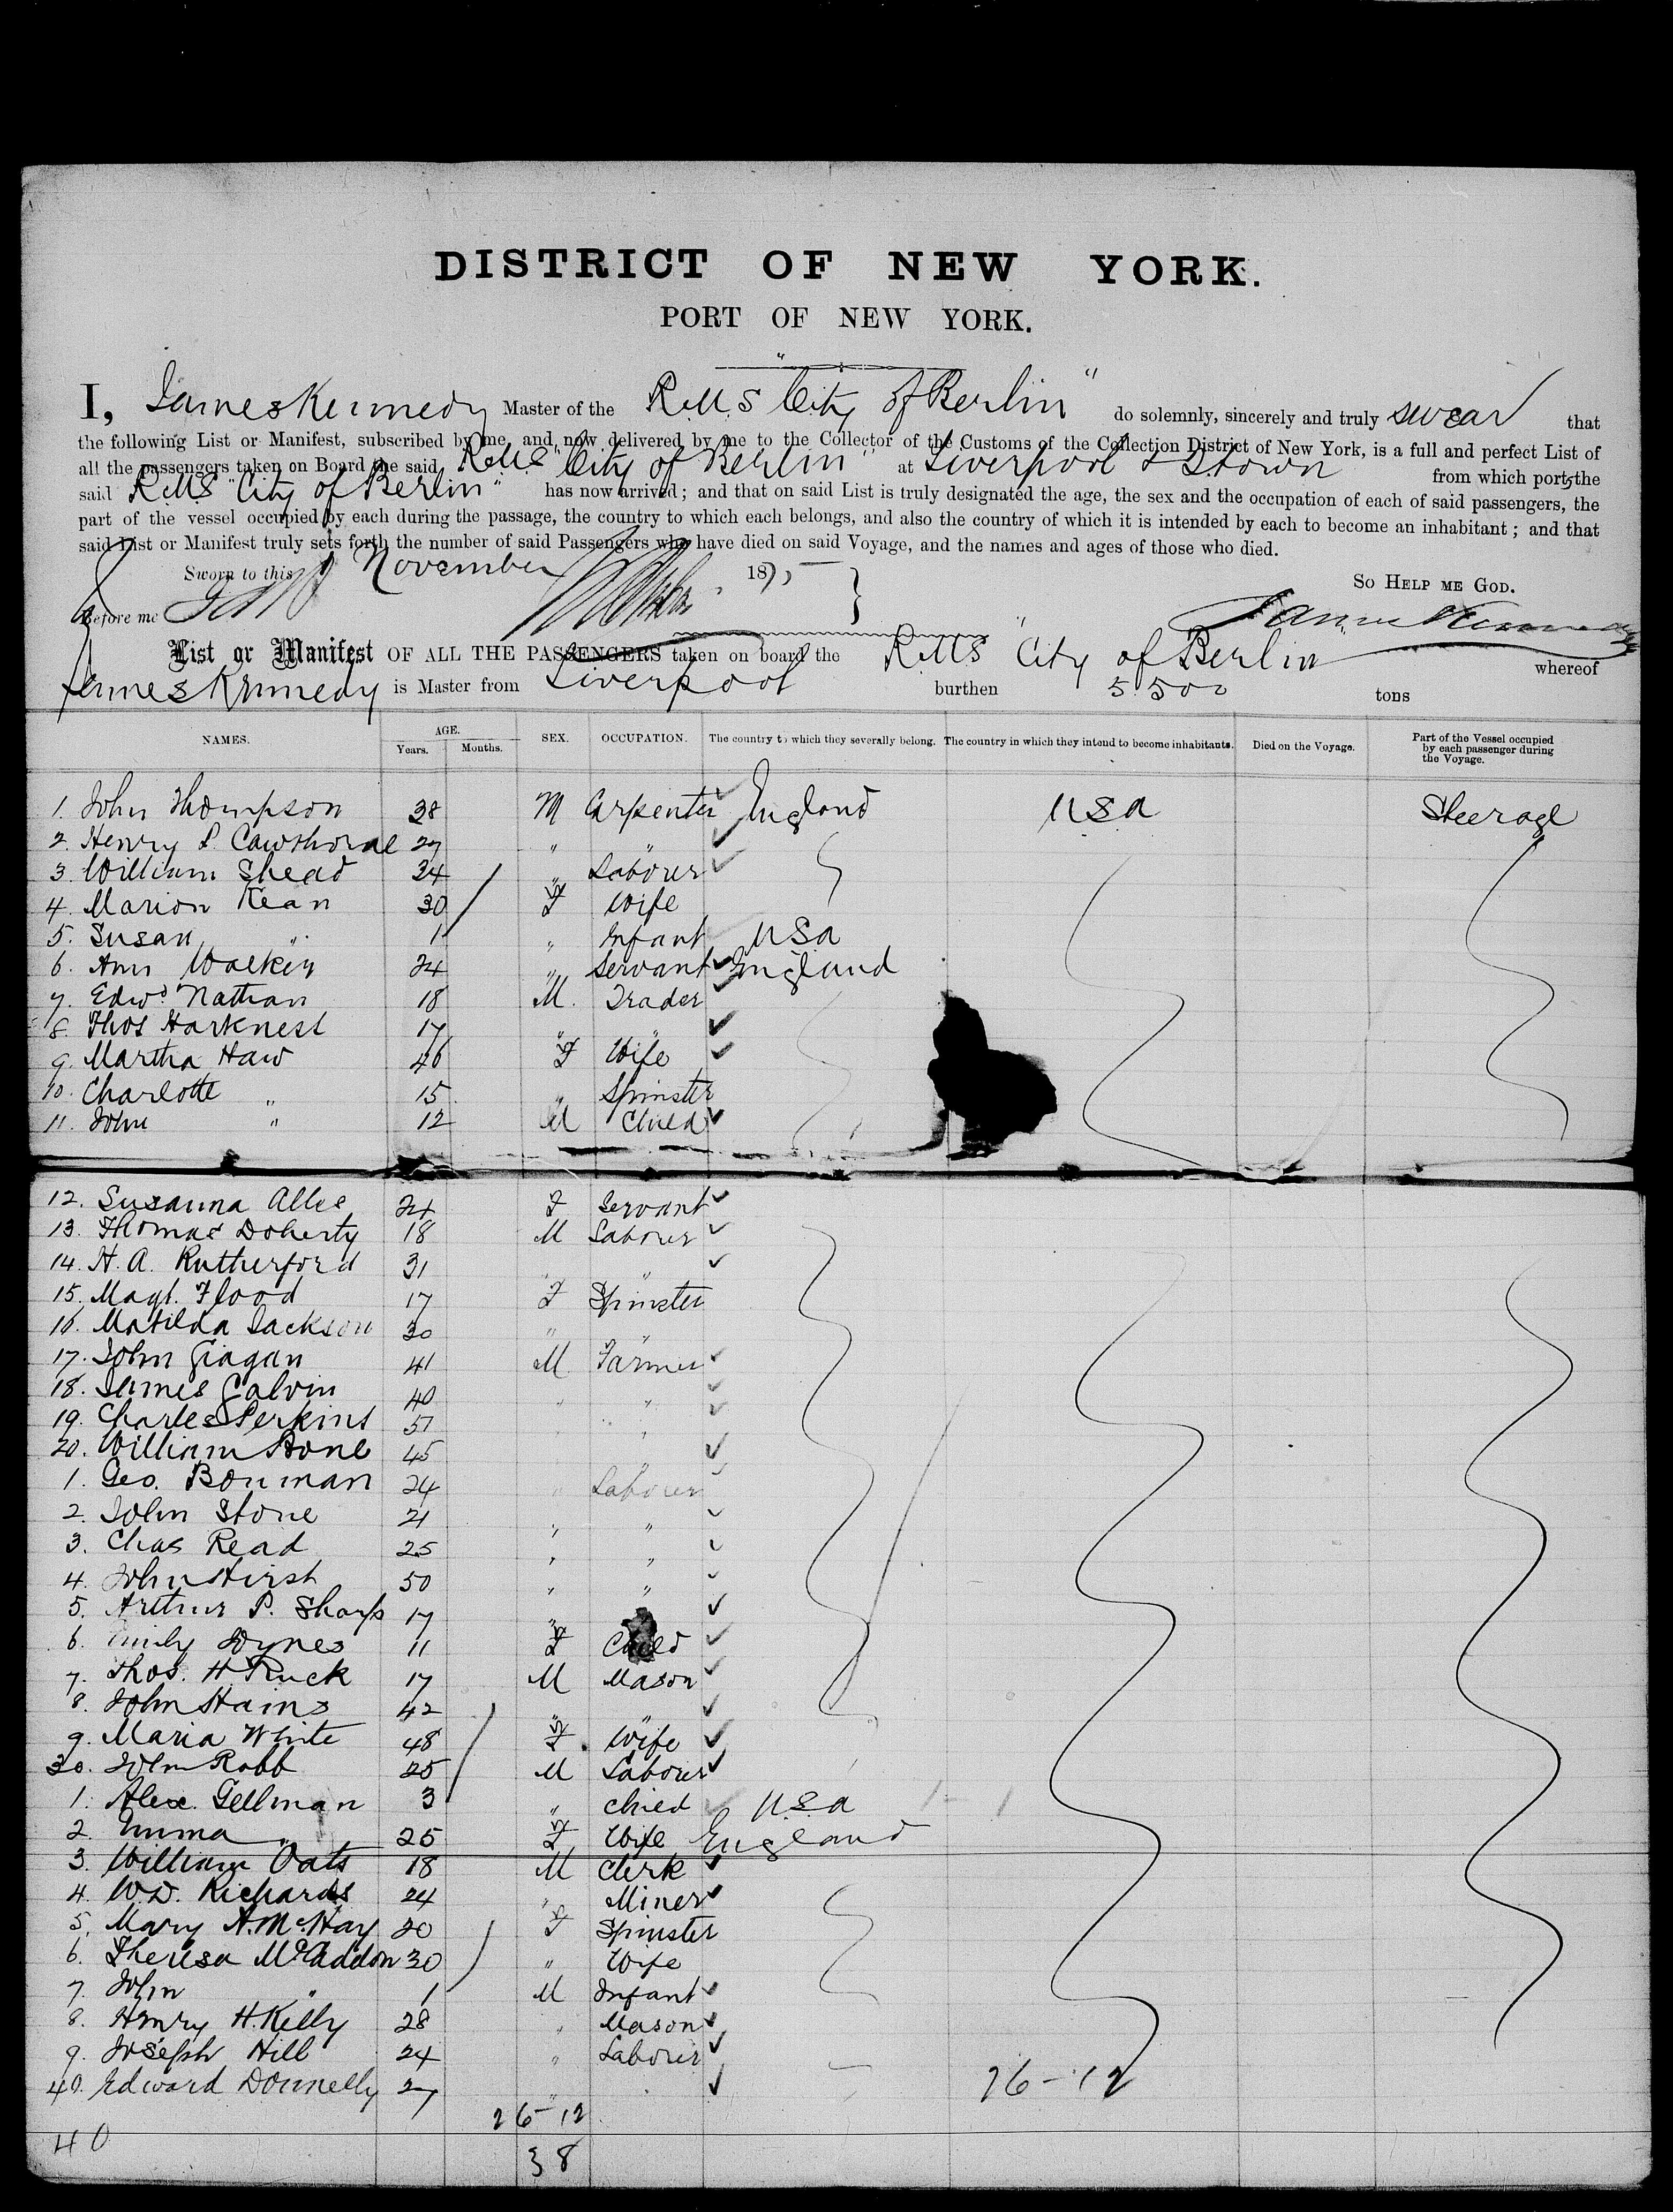 DISTRICT OF NEW YORK.
PORT OF NEW YORK.
I, James Kennedy Master of the RMS "City of Berlin" do solemnly, sincerely and truly swear that
the following List or Manifest, subscribed by me, and now delivered by me to the Collector of the Customs of the Collection District of New York, is a full and perfect List of
all the passengers taken on Board the said RMS "City of Berlin" at Liverpool & Qtown from which ports the
said RMS "City of Berlin" has now arrived; and that on said List is truly designated the age, the sex and the occupation of each of said passengers, the
part of the vessel occupied by each during the passage, the country to which each belongs, and also the country of which it is intended by each to become an inhabitant; and that
said List or Manifest truly sets forth the number of said Passengers who have died on said Voyage, and the names and ages of those who died.
Sworn to this November 1875
So Help me God.
Before me James Kennedy
List or Manifest OF ALL THE PASSENGERS taken on board the RMS City of Berlin whereof
James Kennedy is Master from Liverpool burthen 5500 tons
NAMES. AGE. Years. Months. SEX. OCCUPATION. The country to which they severally belong. The country in which they intend to become inhabitants. Died on the Voyage. Part of the Vessel occupied by each passenger during the Voyage.
1. John Thompson 38 M Carpenter England USA Steerage
2. Henry P. Cawthorne 27 " "
3. William Shead 34 " Labourer
4. Marion Kean 30 F Wife
5. Susan " 1 " Infant USA
6. Ann Walker 24 " Servant England
7. Edwd Nathan 18 M. Trader
8. Thos Harkness 17 " "
9. Martha Haw 46 F Wife
10. Charlotte " 15 " Spinster
11. John " 12 M Child
12. Susanna Alles 24 F Servant
13. Thomas Doherty 18 M Labourer
14. H. A. Rutherford 31 " "
15. Magt. Flood 17 F Spinster
16. Matilda Jackson 30 " "
17. John Giagan 41 M Farmer
18. James Galvin 40 " "
19. Charles Perkins 51 " "
20. William Stone 45 " "
1. Geo. Bouman 24 " Labourer
2. John Stone 21 " "
3. Chas Read 25 " "
4. John Hirst 50 " "
5. Arthur P. Sharp 17 " "
6. Emily Dynes 11 F Child
7. Thos. H Ruck 17 M Mason
8. John Hains 42 " "
9. Maria White 48 F Wife
30. John Robb 25 M Labourer
1. Alex. Gellman 3 " Child USA
2. Emma " 25 F Wife England
3. William Oats 18 M Clerk
4. W.D. Richards 24 " Miner
5. Mary A. McHay 20 F Spinster
6. Theresa McAddon 30 " Wife
7. John " 1 M Infant
8. Henry H. Kelly 28 " Mason
9. Joseph Hill 24 " Labourer
40. Edward Donnelly 27 " 26-12
26-12
40 38